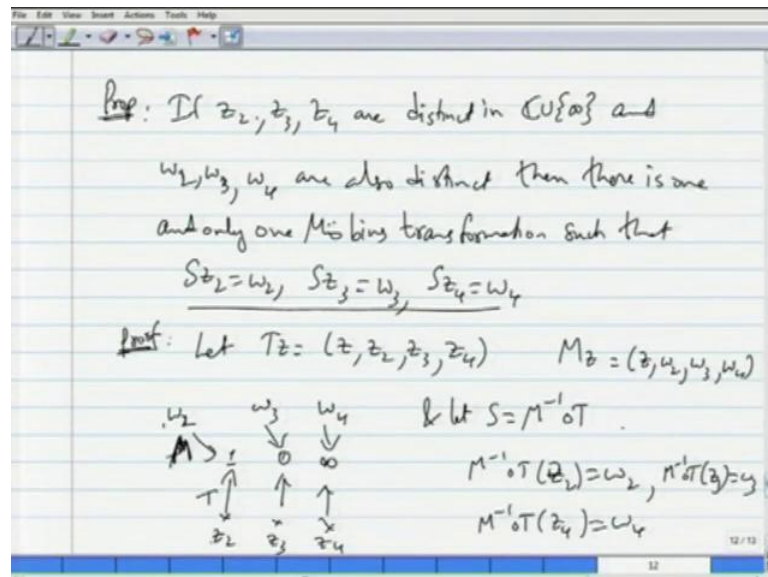 File Edit View Insert Actions Tools Help
Prop: If z₂, z₃, z₄ are distinct in ℂ∪{∞} and
w₂, w₃, w₄ are also distinct then there is one
and only one Möbius transformation such that
Sz₂=w₂, Sz₃=w₃, Sz₄=w₄
Proof: Let Tz = (z, z₂, z₃, z₄) Mz = (z, w₂, w₃, w₄)
w₂ w₃ w₄ & let S = M⁻¹∘T.
M 1 0 ∞ M⁻¹∘T(z₂)=w₂, M⁻¹∘T(z₃)=w₃
T
z₂ z₃ z₄ M⁻¹∘T(z₄)=w₄
12/13
12